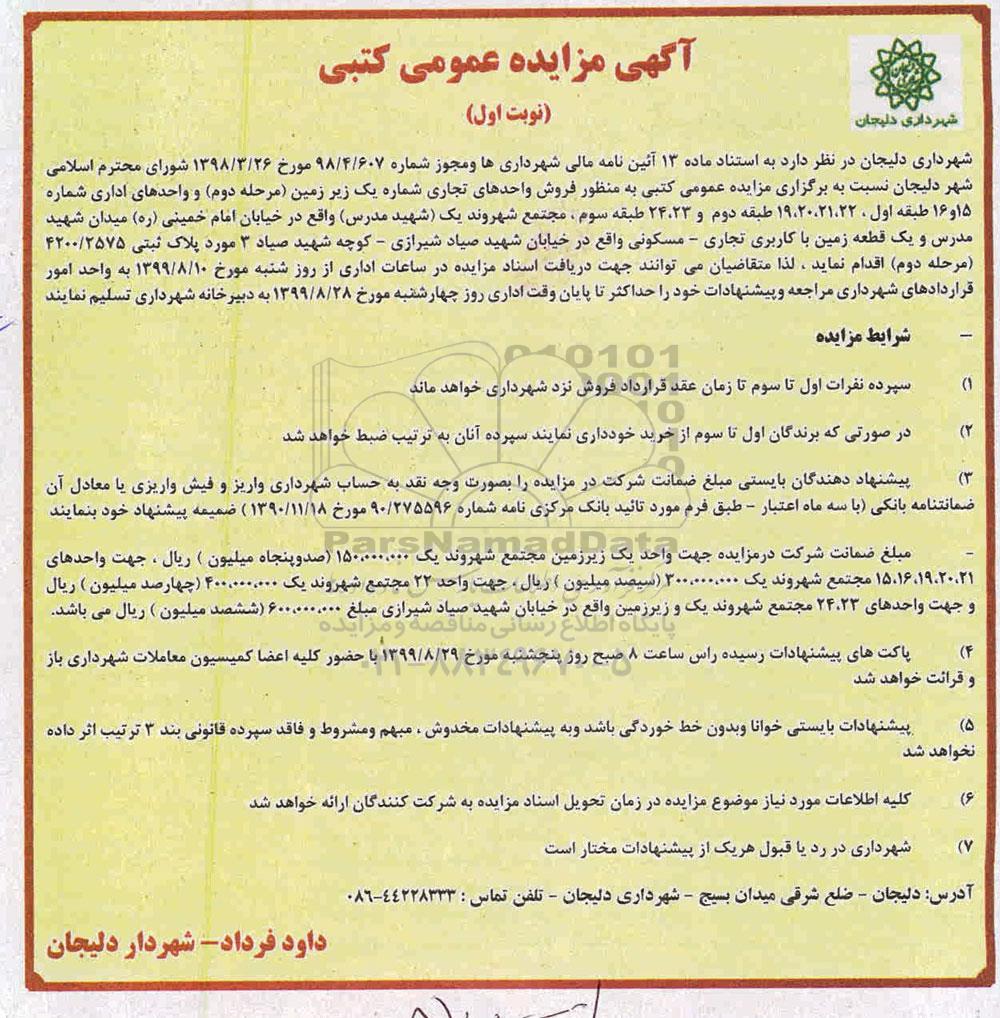 آگهی مزایده عمومی کتبی
(نوبت اول)
شهرداری دلیجان
شهرداری دلیجان در نظر دارد به استناد ماده ۱۳ آئین نامه مالی شهرداری ها ومجوز شماره ۹۸/۴/۶۰۷ مورخ ۱۳۹۸/۳/۲۶ شورای محترم اسلامی
شهر دلیجان نسبت به برگزاری مزایده عمومی کتبی به منظور فروش واحدهای تجاری شماره یک زیر زمین (مرحله دوم) و واحدهای اداری شماره
۱۵و۱۶ طبقه اول ، ۱۹،۲۰،۲۱،۲۲ طبقه دوم و ۲۴،۲۳ طبقه سوم ، مجتمع شهروند یک (شهید مدرس) واقع در خیابان امام خمینی (ره) میدان شهید
مدرس و یک قطعه زمین با کاربری تجاری - مسکونی واقع در خیابان شهید صیاد شیرازی - کوچه شهید صیاد ۳ مورد پلاک ثبتی ۴۲۰۰/۲۵۷۵
(مرحله دوم) اقدام نماید ، لذا متقاضیان می توانند جهت دریافت اسناد مزایده در ساعات اداری از روز شنبه مورخ ۱۳۹۹/۸/۱۰ به واحد امور
قراردادهای شهرداری مراجعه وپیشنهادات خود را حداکثر تا پایان وقت اداری روز چهارشنبه مورخ ۱۳۹۹/۸/۲۸ به دبیرخانه شهرداری تسلیم نمایند
- شرایط مزایده
۱) سپرده نفرات اول تا سوم تا زمان عقد قرارداد فروش نزد شهرداری خواهد ماند
۲) در صورتی که برندگان اول تا سوم از خرید خودداری نمایند سپرده آنان به ترتیب ضبط خواهد شد
۳) پیشنهاد دهندگان بایستی مبلغ ضمانت شرکت در مزایده را بصورت وجه نقد به حساب شهرداری واریز و فیش واریزی یا معادل آن
ضمانتنامه بانکی (با سه ماه اعتبار - طبق فرم مورد تائید بانک مرکزی نامه شماره ۹۰/۲۷۵۵۹۶ مورخ ۱۳۹۰/۱۱/۱۸ ) ضمیمه پیشنهاد خود بنمایند
- مبلغ ضمانت شرکت درمزایده جهت واحد یک زیرزمین مجتمع شهروند یک ۱۵۰،۰۰۰،۰۰۰ (صدوپنجاه میلیون ) ریال ، جهت واحدهای
۱۵،۱۶،۱۹،۲۰،۲۱ مجتمع شهروند یک ۳۰۰،۰۰۰،۰۰۰ (سیصد میلیون ) ریال ، جهت واحد ۲۲ مجتمع شهروند یک ۴۰۰،۰۰۰،۰۰۰ (چهارصد میلیون ) ریال
و جهت واحدهای ۲۴،۲۳ مجتمع شهروند یک و زیرزمین واقع در خیابان شهید صیاد شیرازی مبلغ ۶۰۰،۰۰۰،۰۰۰ (ششصد میلیون ) ریال می باشد.
۴) پاکت های پیشنهادات رسیده راس ساعت ۸ صبح روز پنجشنبه مورخ ۱۳۹۹/۸/۲۹ با حضور کلیه اعضا کمیسیون معاملات شهرداری باز
و قرائت خواهد شد
۵) پیشنهادات بایستی خوانا وبدون خط خوردگی باشد وبه پیشنهادات مخدوش ، مبهم ومشروط و فاقد سپرده قانونی بند ۳ ترتیب اثر داده
نخواهد شد
۶) کلیه اطلاعات مورد نیاز موضوع مزایده در زمان تحویل اسناد مزایده به شرکت کنندگان ارائه خواهد شد
۷) شهرداری در رد یا قبول هریک از پیشنهادات مختار است
آدرس: دلیجان - ضلع شرقی میدان بسیج - شهرداری دلیجان - تلفن تماس : ۴۴۲۲۸۳۳۳-۰۸۶
داود فرداد- شهردار دلیجان
ParsNamadData
پایگاه اطلاع رسانی مناقصه و مزایده